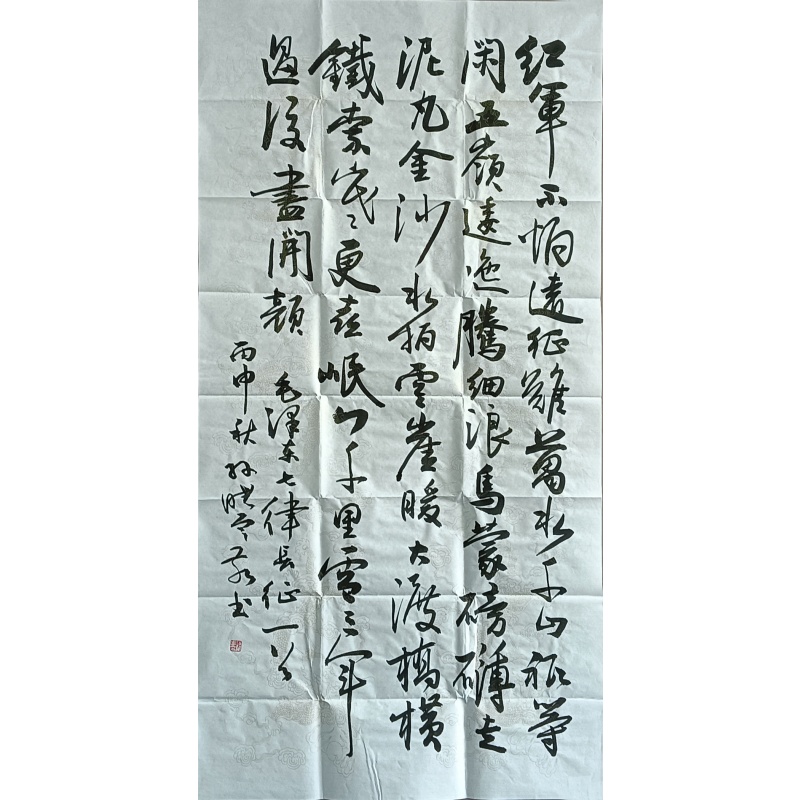 红軍不怕遠征難萬水千山祇等
閑五嶺逶迤騰細浪烏蒙磅礴走
泥丸金沙水拍雲崖暖大渡橋橫
鐵索寒更喜岷山千里雪三軍
過後盡開顏
毛澤東七律長征一首
丙申秋孙书